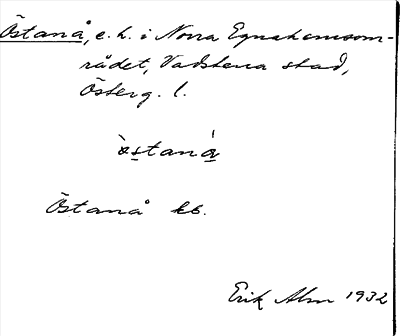 Östanå, e. h. i Norra Egnahemsom-
rådet, Vadstena stad,
Österg. l.
òstaná
Östanå kb.
Erik Alm 1932